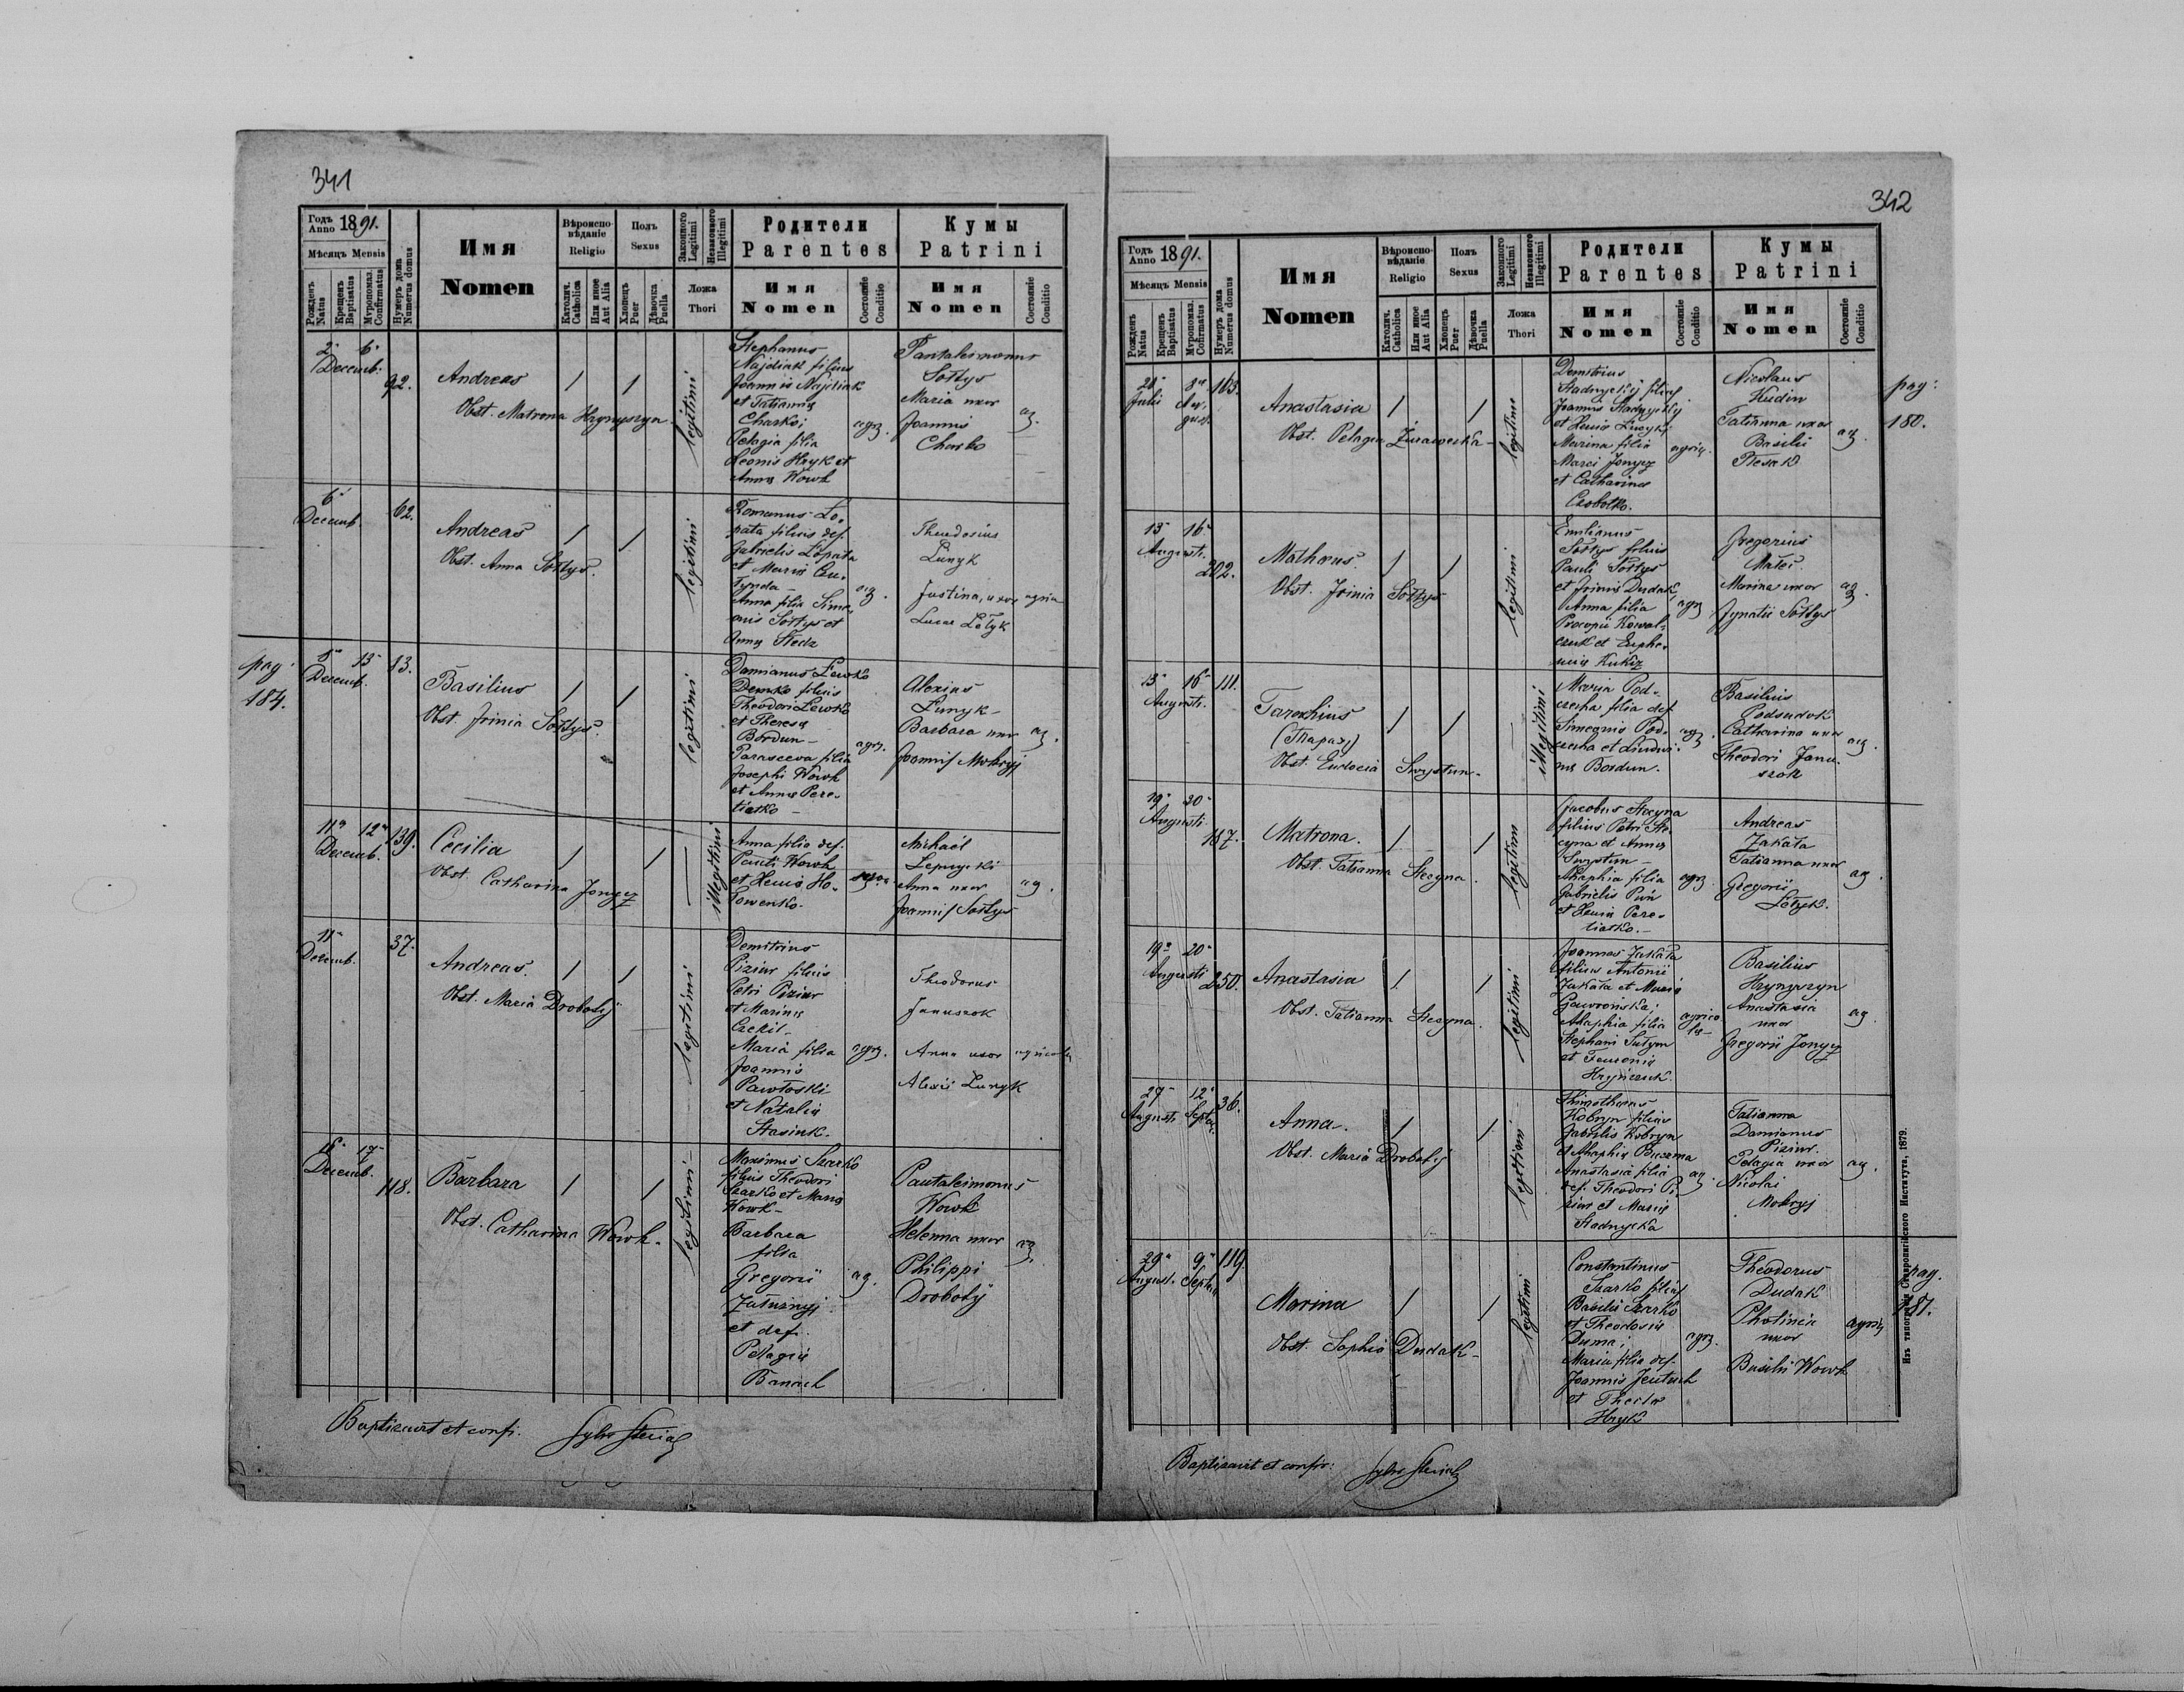 341
Годъ Anno 1891.
Мѣсяцъ Mensis
Рожденъ Natus
Крещенъ Baptisatus
Муропомаз. Confirmatus
Нумеръ дома Numerus domus
Имя
Nomen
Вѣроиспо-
вѣданіе
Religio
Католич. Catholica
Или иное Aut Alia
Полъ
Sexus
Хлопецъ Puer
Дѣвочка Puella
Законного Legitimi
Незаконного Illegitimi
Ложа
Thori
Родители
Parentes
Имя
Nomen
Состояніе Conditio
Кумы
Patrini
Имя
Nomen
Состояніе Conditio
2 6
Decemb.
92.
Andreas
Obst. Matrona Hrynyszyn
legitimi
Stephanus
Najdiak filius
Joannis Najdiak
et Tatianna
Charko;
Pelagia filia
Leonis Hryk et
Anna Wowk
agr.
Pantaleimonus
Sołtys
Maria uxor
Joannis
Charko
ag.
6
Decemb.
62.
Andreas
Obst. Anna Sołtys.
legitimi
Romanus Ło-
pata filius def.
Gabrielis Łopata
et Maria
Anna filia Sime-
onis Sołtys et
Anna
ag.
Theodosius
Łunyk
Justina, uxor
Lucae Łotyk
pag.
184.
8 13
Decemb.
13.
Basilius
Obst. Irinia Sołtys.
legitimi
Damianus Lewko
Demko filius
Theodori Lewko
et Theresa
Bordun-
Parasceva filia
Josephi Wowk
et Anna Pere-
tiatko-
agr.
Alexius
Łunyk-
Barbara uxor
Joannis Mokryj
ag.
11 12
Decemb.
139.
Cecilia
Obst. Catharina Jonycz
illegitimi
Anna filia def.
Pauli Wowk
et Ho-
łowenko.
Michael
Anna uxor
Joannis Sołtys
ag.
11
Decemb.
37.
Andreas.
Obst. Maria Drobotij
legitimi
Demitrius
Piziur filius
Petri Piziur
et Marina
Maria filia
Joannis
Pawłoski
et Natalia
Stasiuk.
agr.
Theodorus
Januszok
Anna uxor agricola
Alexii Łunyk
16 17
Decemb.
118.
Barbara
Obst. Catharina Wowk.
legitimi
Maximus Szarko
filius Theodori
Szarko et Maria
Wowk-
Barbara
filia
Gregorii
Załużnyj
et def.
Pelagia
Banach
ag.
Pantaleimonus
Wowk
Helenna uxor
Philippi
Drobotij
ag.
Baptisavit et confi.
342
Годъ Anno 1891.
Мѣсяцъ Mensis
Рожденъ Natus
Крещенъ Baptisatus
Муропомаз. Confirmatus
Нумеръ дома Numerus domus
Имя
Nomen
Вѣроиспо-
вѣданіе
Religio
Католич. Catholica
Или иное Aut Alia
Полъ
Sexus
Хлопецъ Puer
Дѣвочка Puella
Законного Legitimi
Незаконного Illegitimi
Ложа
Thori
Родители
Parentes
Имя
Nomen
Состояніе Conditio
Кумы
Patrini
Имя
Nomen
Состояніе Conditio
Julii
Au-
gust.
163.
Anastasia
Obst. Pelagia Żurawecka-
legitimi
Demitrius
Stadnyckij filius
Joannis Stadnyckij
Marina filia
Marci Jonycz
et Catharina
Czobotko.
agric.
Nicolaus
Kudin
Tatianna uxor
Basilii
Plesak
ag.
pag.
180.
13 16
Augusti.
202.
Matheus.
Obst. Irinia Sołtys
legitimi
Emilianus
Sołtys filius
Pauli Sołtys
et Irinia Dudak,
Anna filia
Procopii Kowal-
czuk et Euphe-
mia
agr.
Gregorius
Małec.
Marina uxor
Ignatii Sołtys
ag.
13 16
Augusti.
111.
Tarachius
(Тарахъ)
Obst. Eudocia Swystun.
illegitimi
Maria Pod-
filia def.
et Ludwi-
na Bordun.
agr.
Basilius
Podsudok
Catharina uxor
Theodori Janu-
szok
ag.
19 20
Augusti.
187.
Matrona.
Obst. Tatianna Stecyna.
legitimi
Jacobus Stecyna
filius Petri Ste-
cyna et Anna
Swystun-
Ahaphia filia
Gabrielis
et Pere-
tiatko.-
agr.
Andreas
Zakała
Tatianna uxor
Gregorii
Łotyk.
ag.
19 20
Augusti
250.
Anastasia
Obst. Tatianna Stecyna.
legitimi
Joannes Zakała
filius Antonii
Zakała et Maria
Ahaphia filia
Stephani
et
agrico-
la-
Basilius
Hrynyszyn
Anastasia
uxor
Gregorii Jonycz
ag.
27 12
Augusti. Septem.
36.
Anna.
Obst. Maria Drobotij
legitimi
Thimotheus
Kobryn filius
Gabrielis Kobryn
et Ahaphia
Anastasia filia
def. Theodori Pi-
ziur et Maria
Stadnycka
ag.
Tatianna
Damianus
Piziur.
Pelagia uxor
Nicolai
Mokryj
ag.
29 9
August. Septem.
119.
Marina
Obst. Sophia Dudak-
legitimi
Constantinus
Szarko filius
Basilii Szarko
et Theodosia
Duma;
Maria filia def.
Joannis
et Thecla
Hryk
agr.
Theodorus
Dudak
Photinia
uxor
Basilii Wowk
pag.
181.
Baptisavit et confir:
Изъ типографіи Ставропигійского Института, 1879.